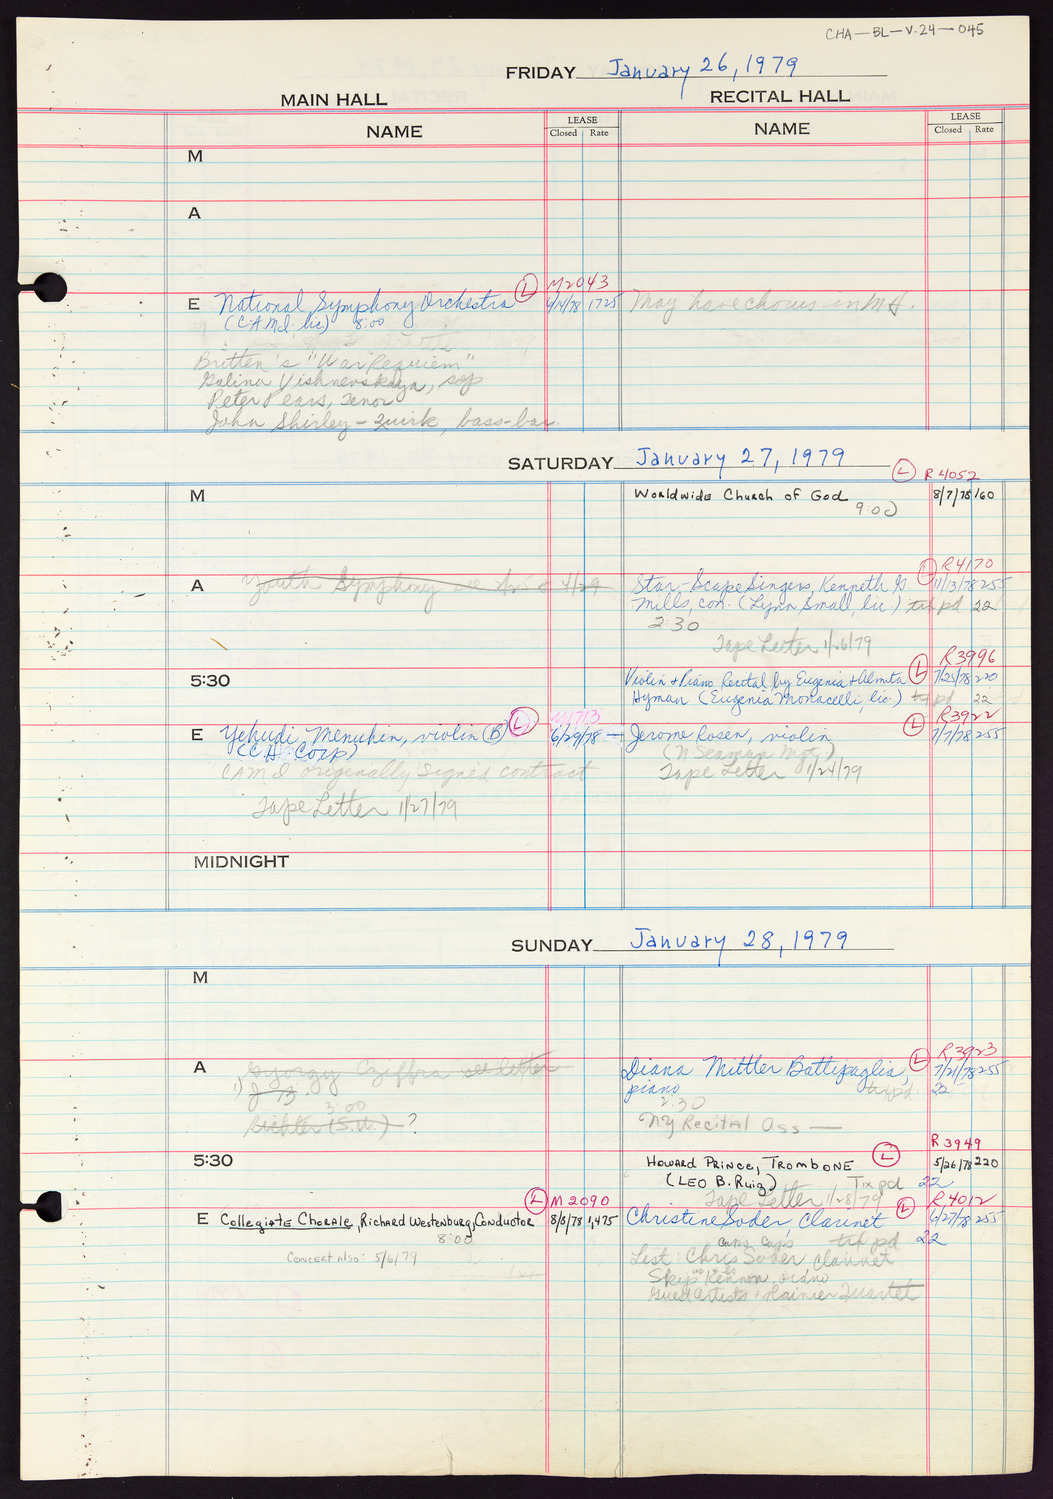 CHA-BL-V.24-045
FRIDAY January 26, 1979
MAIN HALL
RECITAL HALL
NAME
LEASE
Closed Rate
NAME
LEASE
Closed Rate
M
A
M2043
E National Symphony Orchestra L 4/14/78 1725 May have chorus in M.H.
(C.A.M.I. lic) 8:00
Britten's "War Requiem"
Galina Vishnevskaya, sop
Peter Pears, Tenor
John Shirley-Quirk, bass-bar.
SATURDAY January 27, 1979
L R4052
M Worldwide Church of God 8/7/78 160
9:00
L R4170
A Youth Symphony 4/29 Star-Scape Singers, Kenneth G. 11/13/78 255
Mills, con. (Lynn Small, lic.) tix pd 22
2:30
Tape Letter 1/26/79
L R3996
5:30 Violin + Piano Recital by Eugenia + Almita 7/25/78 220
Hyman (Eugenia Monacelli, lic.) tix pd 22
L R3922
E Yehudi Menuhin, violin (B) L M1713 6/29/78 — Jerome Rosen, violin 7/7/78 255
(C.H. Corp) (N Seaman Mgt.)
CAMI originally signed contract Tape Letter 1/24/79
Tape Letter 1/27/79
MIDNIGHT
SUNDAY January 28, 1979
M
L R3923
A Gyorgy Cziffra see letter Diana Mittler Battipaglia, 7/21/78 255
piano tix pd. 22
3:00 2:30
Richter (S.H.) — ? NY Recital Ass —
R3949
5:30 Howard Prince, Trombone L 5/26/78 220
(Leo B. Ruiz) Tix pd 22
Tape Letter 1/28/79
L M2090 L R4012
E Collegiate Chorale, Richard Westenburg, Conductor 8/8/78 1,475 Christine Soder, Clarinet 6/27/78 255
8:00 caps Caps tix pd 22
Concert also: 5/6/79 List: Chris Soder clarinet
Skip Kennon, piano
Guest Artists: Rainier Quartet